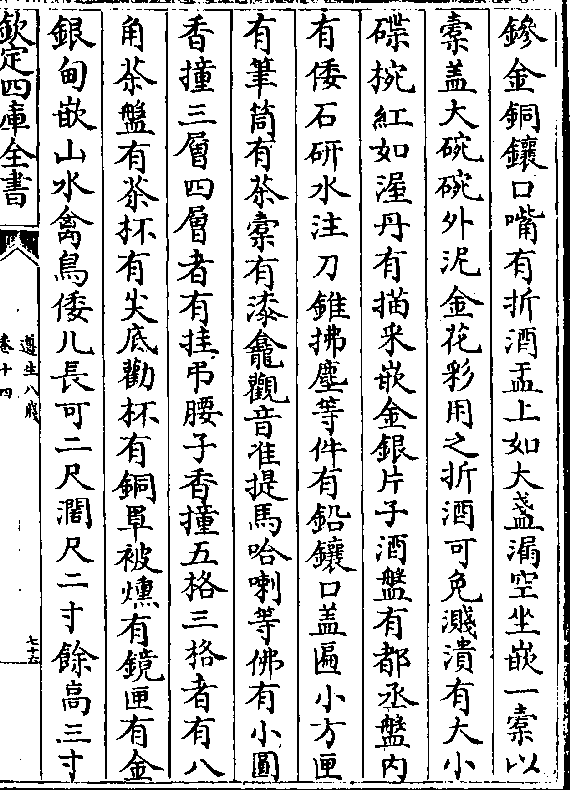 鏒金銅鑲口嘴有折酒盂上如大盞漏空坐嵌一槖以
槖盖大碗碗外泥金花彩用之折酒可免濺潰有大小
碟椀紅如渥丹有描彩嵌金銀片子酒盤有都丞盤内
有倭石研水注刀錐拂塵等件有鉛鑲口盖匾小方匣
有筆筒有茶槖有漆龕觀音准提馬哈喇等佛有小圓
香撞三層四層者有挂弔腰子香撞五格三格者有八
角茶盤有茶杯有尖底勸杯有銅罩被爋有鏡匣有金
銀甸嵌山水禽鳥倭几長可二尺濶尺二寸餘高三寸
欽定四庫全書
遵生八牋
卷十四
七十六